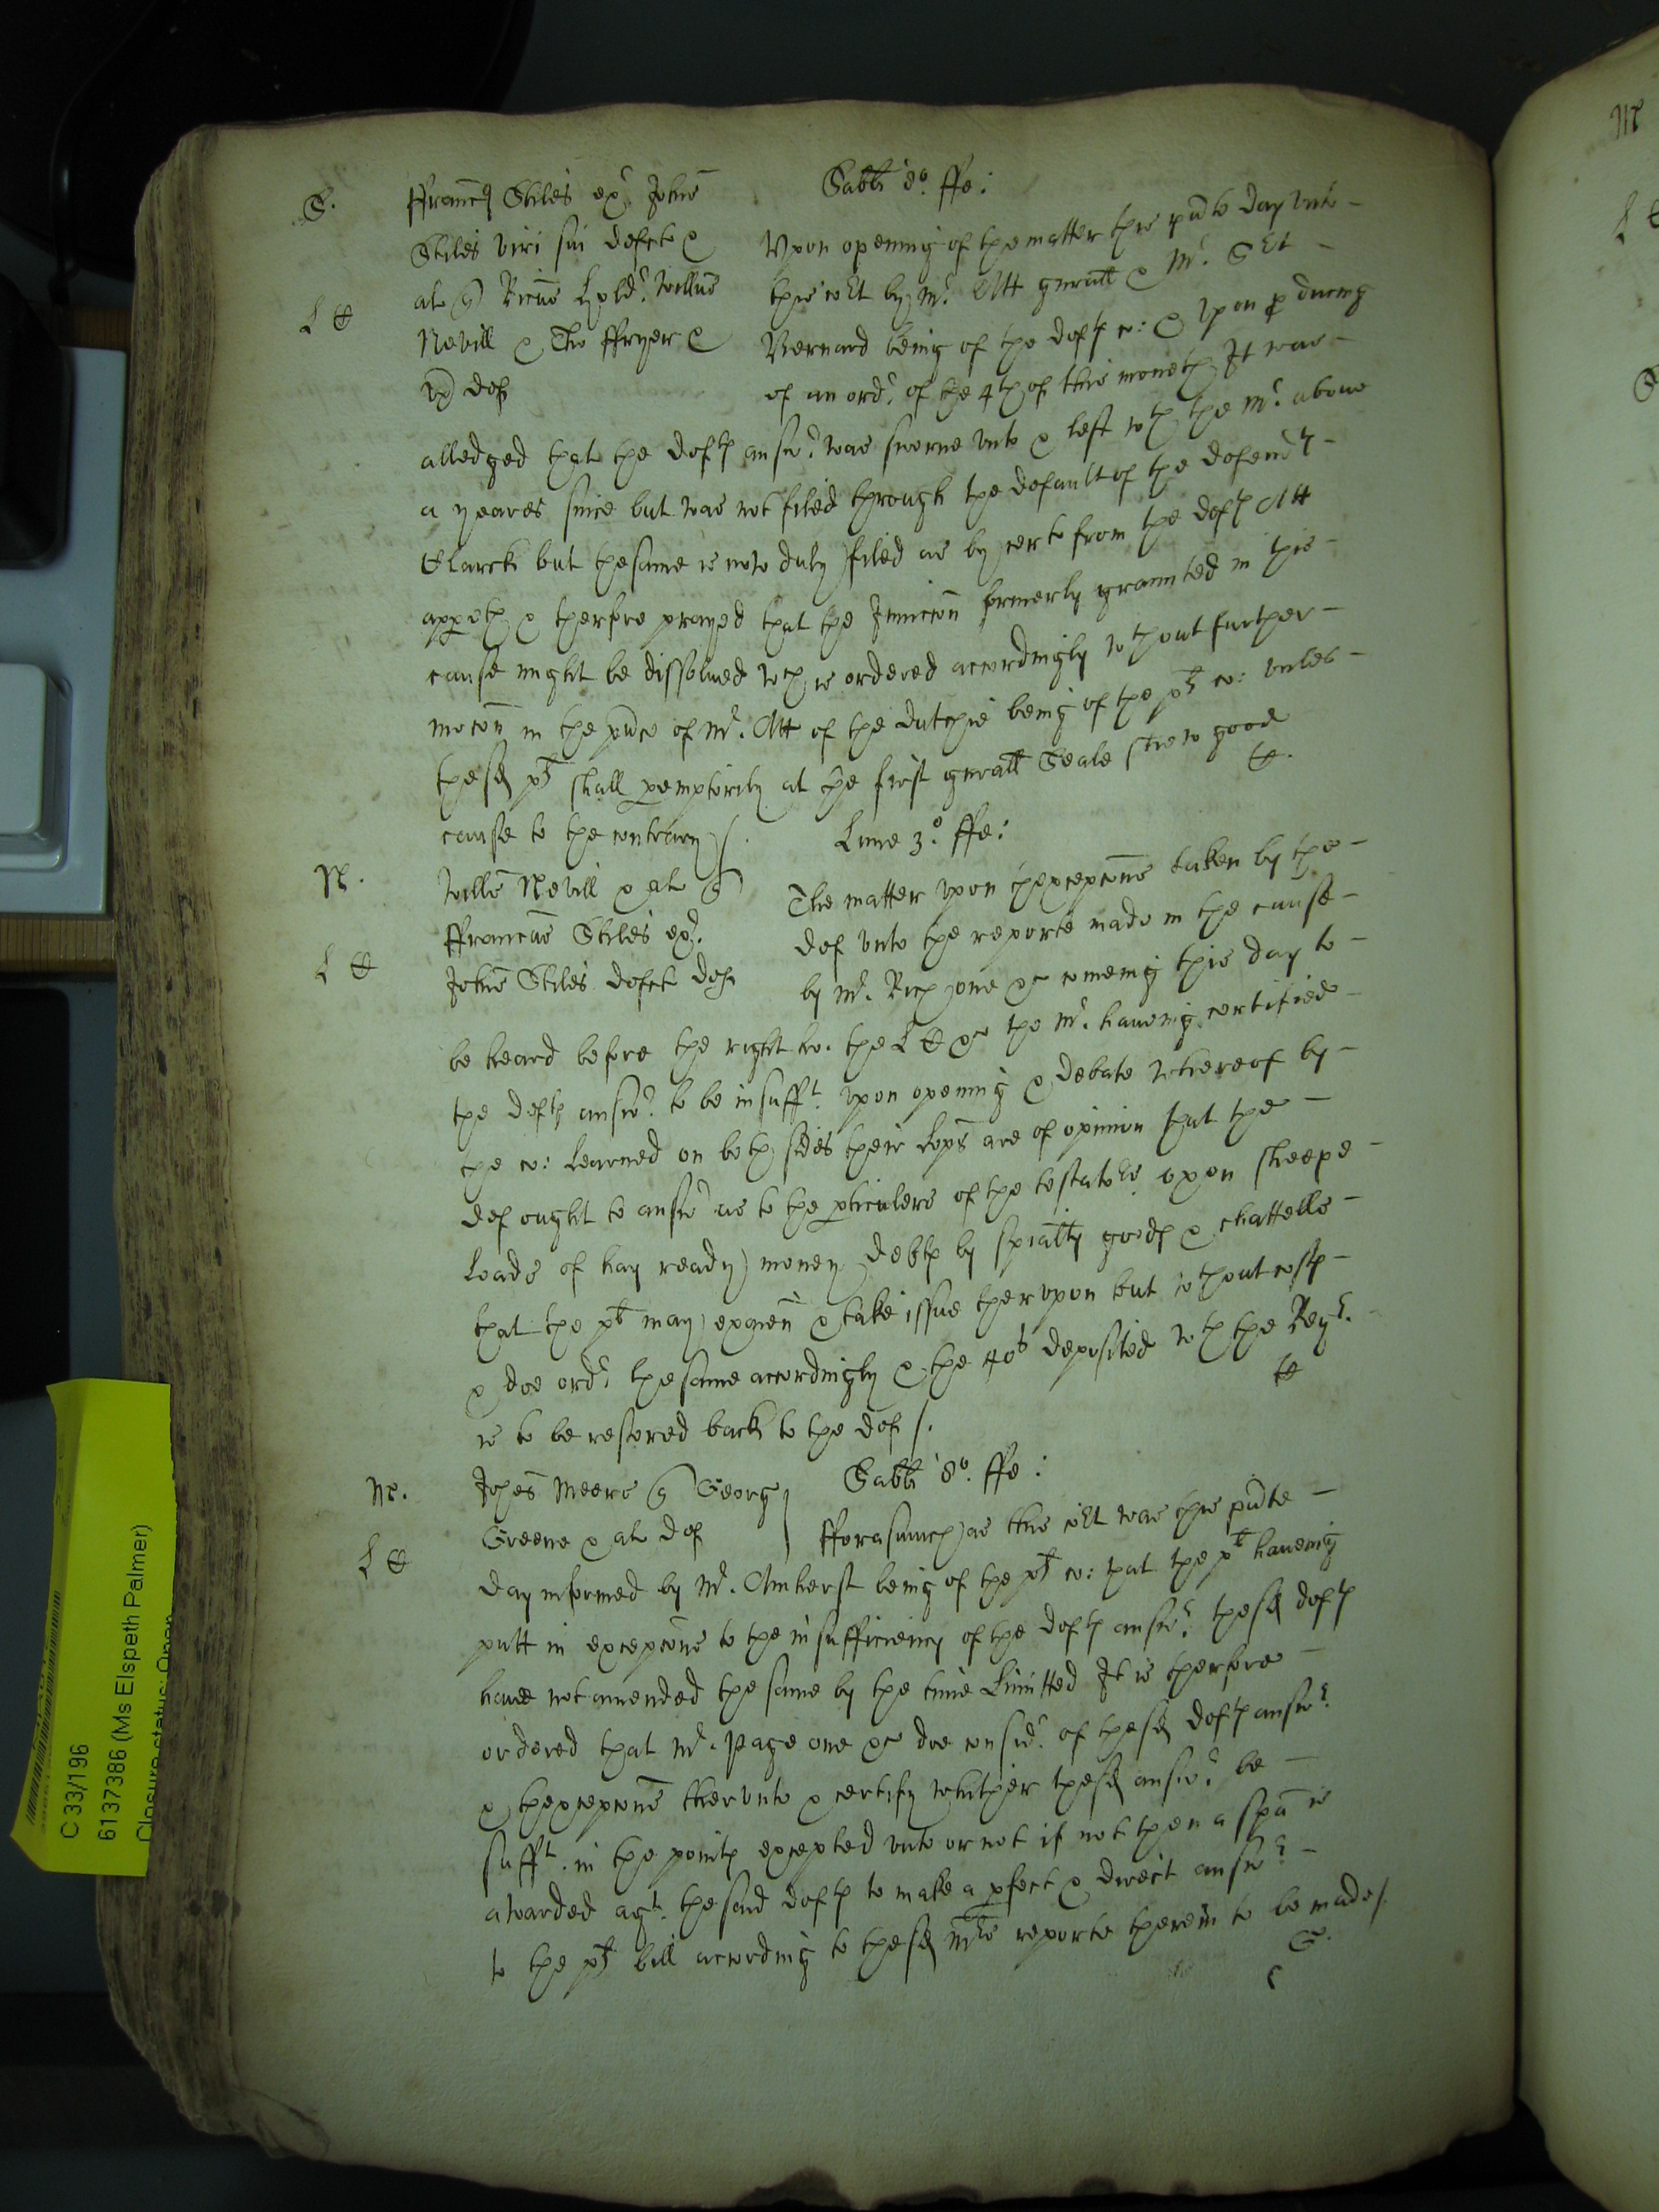 Sabti 8o. ffe:
S. ffranc Stiles ex Johis
Stiles viri sui defct &
L C al Ricus willus
Nevill & Tho ffryer &
ux def
Upon opening of the matter this pnte day unto
this Cort by Mr. Att gnrall & Mr. Sert
Bernard being of the defts co: & upon pducing
of an ordr. of the 4th of this moneth It was
alledged that the defts answr. was sworne unto & left wth the Mr. above
a yeares since but was not filed through the default of the defendts
Clarck but the same is now duly filed as by certe from the defts Att
appeth & therfore prayed that the Iniuccon formerly graunted in this
cause might be dissolued wch is ordered accordingly wthout further
mocon in the pnce of Mr. Att of the Dutchie being of the plts co: unles
the sd plt shall pemptorily at the first gnrall Seale shew good
cause to the contrary /. C.
Lune 3o. ffe:
N. Willus Nevill & al
L C ffrancus Stiles ex.
Johis Stiles defct def
The matter upon thexcepcons taken by the
def unto the reporte made in the cause
by Mr. Rich one &c comeing this day to
be heard before the right ho. the L C &c the Mr. haueing certified
the defts answr. to be insufft. upon opening & debate whereof by
the co: learned on both sides their Lops are of opinion that the
def ought to answr as to the pticulers of the testators oxen sheepe
loads of hay ready money debts by spialty goods & chattells
that the plt may & take issue therupon but wthout costs
& doe ordr. the same accordingly & the 40s deposited wth the Regr.
is to be restored back to the def /. C
Sabti 8o. ffe:
M. Johes Meere George
L C Greene & al def
fforasmuch as this Cort was this pnte
day informed by Mr. Amherst being of the plts co: that the plt haueing
putt in excepcons to the insufficiency of the defts answr. the sd defts
haue not amended the same by the time limitted It is therfore
ordered that Mr. Page one &c doe considr. of the sd defts answr.
& thexcepcons therunto & certify whither the sd answr. be
sufft. in the points excepted unto or not if not then a spa is
awarded agt. the said defts to make a pfect & direct answr.
to the plts bill according to the sd Mrs reporte therein to be made /.
C 33/196
6137386 (Ms Elspeth Palmer)
Closure status: Open